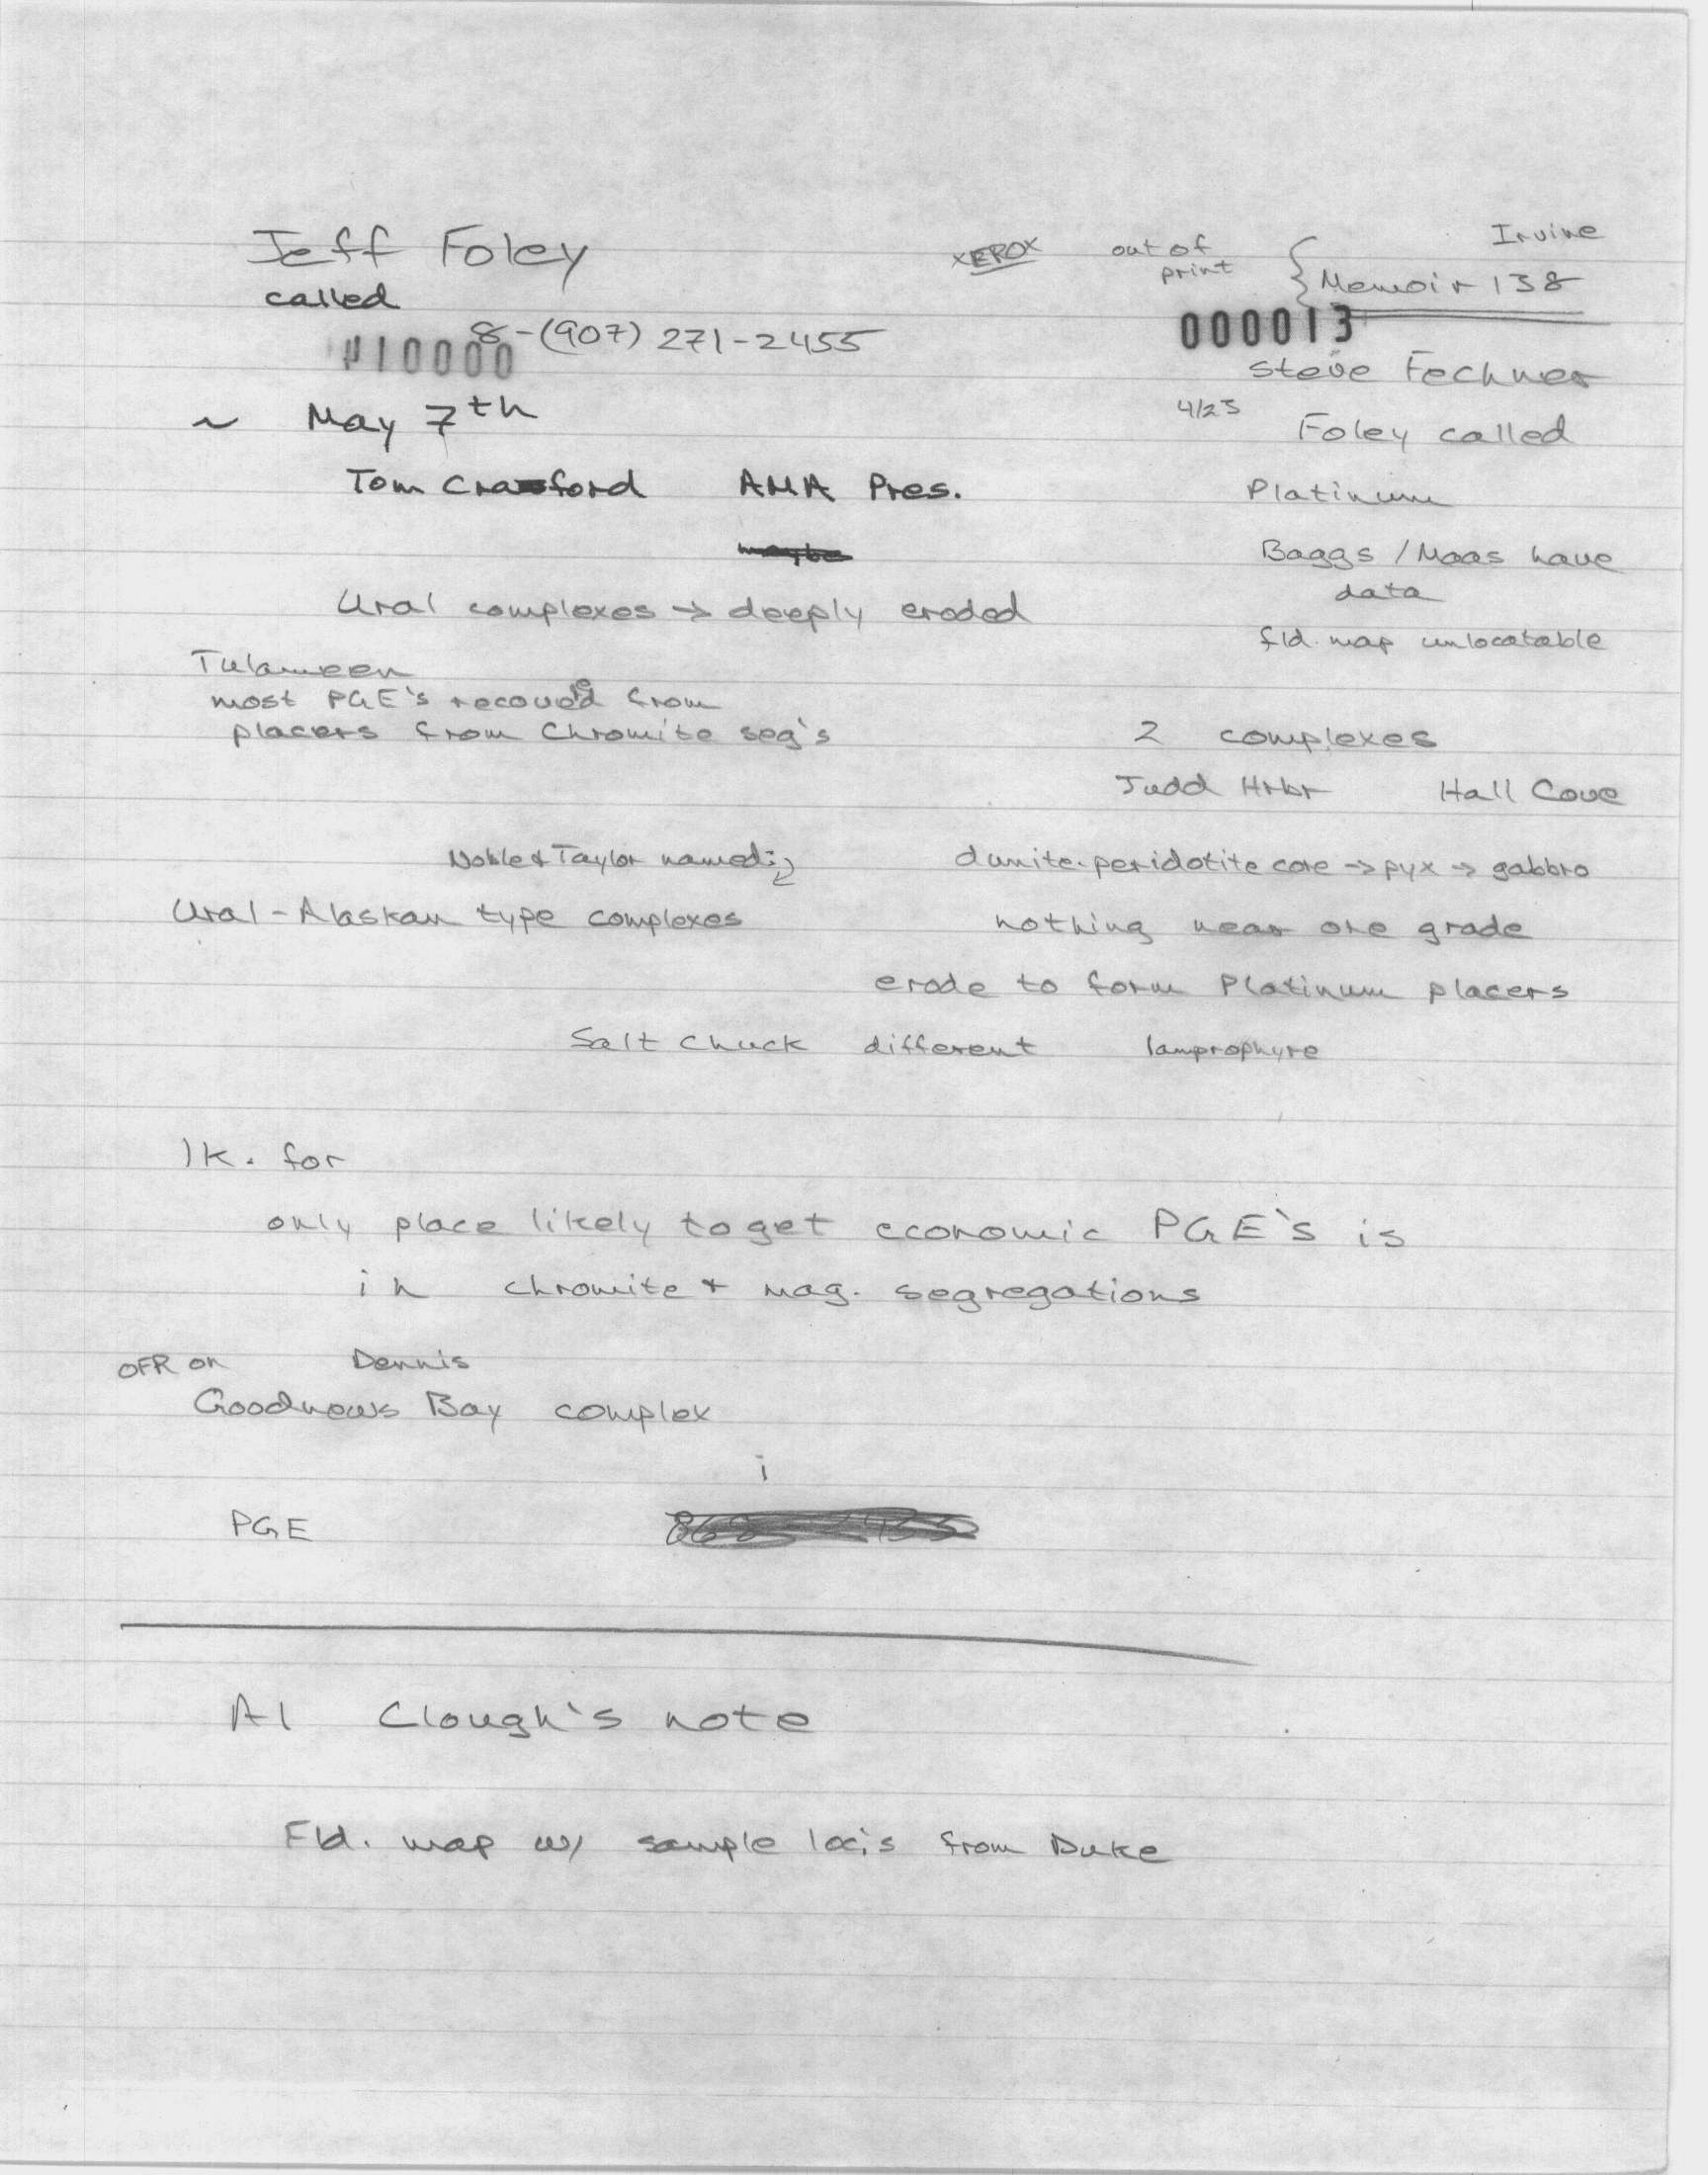 Jeff Foley
called
8-(907) 271-2455
010000
~ May 7th
Tom Crawford AMA Pres.
Ural complexes → deeply eroded
Tulameen
most PGE's recovered from
placers from Chromite seg's
Noble & Taylor named:
Ural-Alaskan type complexes
XEROX
out of
print
Irvine
Memoir 138
000013
Steve Fechner
4/23
Foley called
Platinum
Baggs / Maas have
data
fld. map unlocatable
2 complexes
Judd Hrbr Hall Cove
dunite-peridotite core → pyx → gabbro
nothing near ore grade
erode to form Platinum placers
Salt Chuck different lamprophyre
lk. for
only place likely to get economic PGE's is
in chromite + mag. segregations
OFR on Dennis
Goodnews Bay complex
i
PGE
Al Clough's note
Fld. map w/ sample loc's from Duke